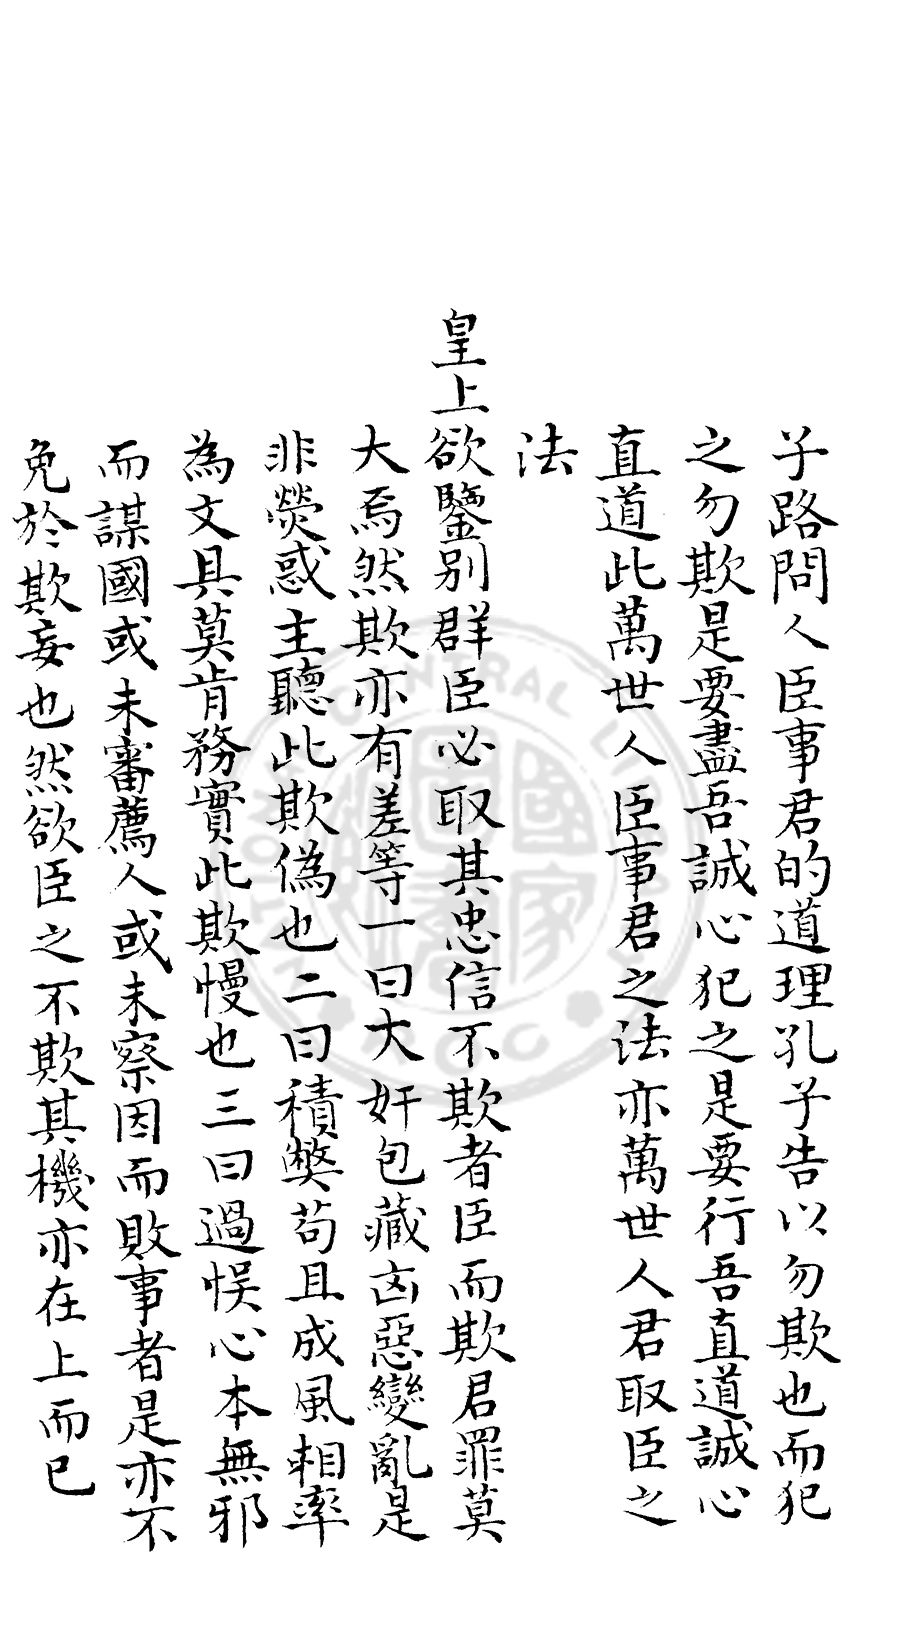 子路問人臣事君的道理孔子告以勿欺也而犯
之勿欺是要盡吾誠心犯之是要行吾直道誠心
直道此萬世人臣事君之法亦萬世人君取臣之
法
皇上欲鑒別群臣必取其忠信不欺者臣而欺君罪莫
大焉然欺亦有差等一曰大奸包藏凶惡變亂是
非熒惑主聽此欺偽也二曰積弊苟且成風相率
為文具莫肯務實此欺慢也三曰過悮心本無邪
而謀國或未審薦人或未察因而敗事者是亦不
免於欺妄也然欲臣之不欺其機亦在上而已
NATIONAL CENTRAL LIBRARY
ROC
國家圖書館